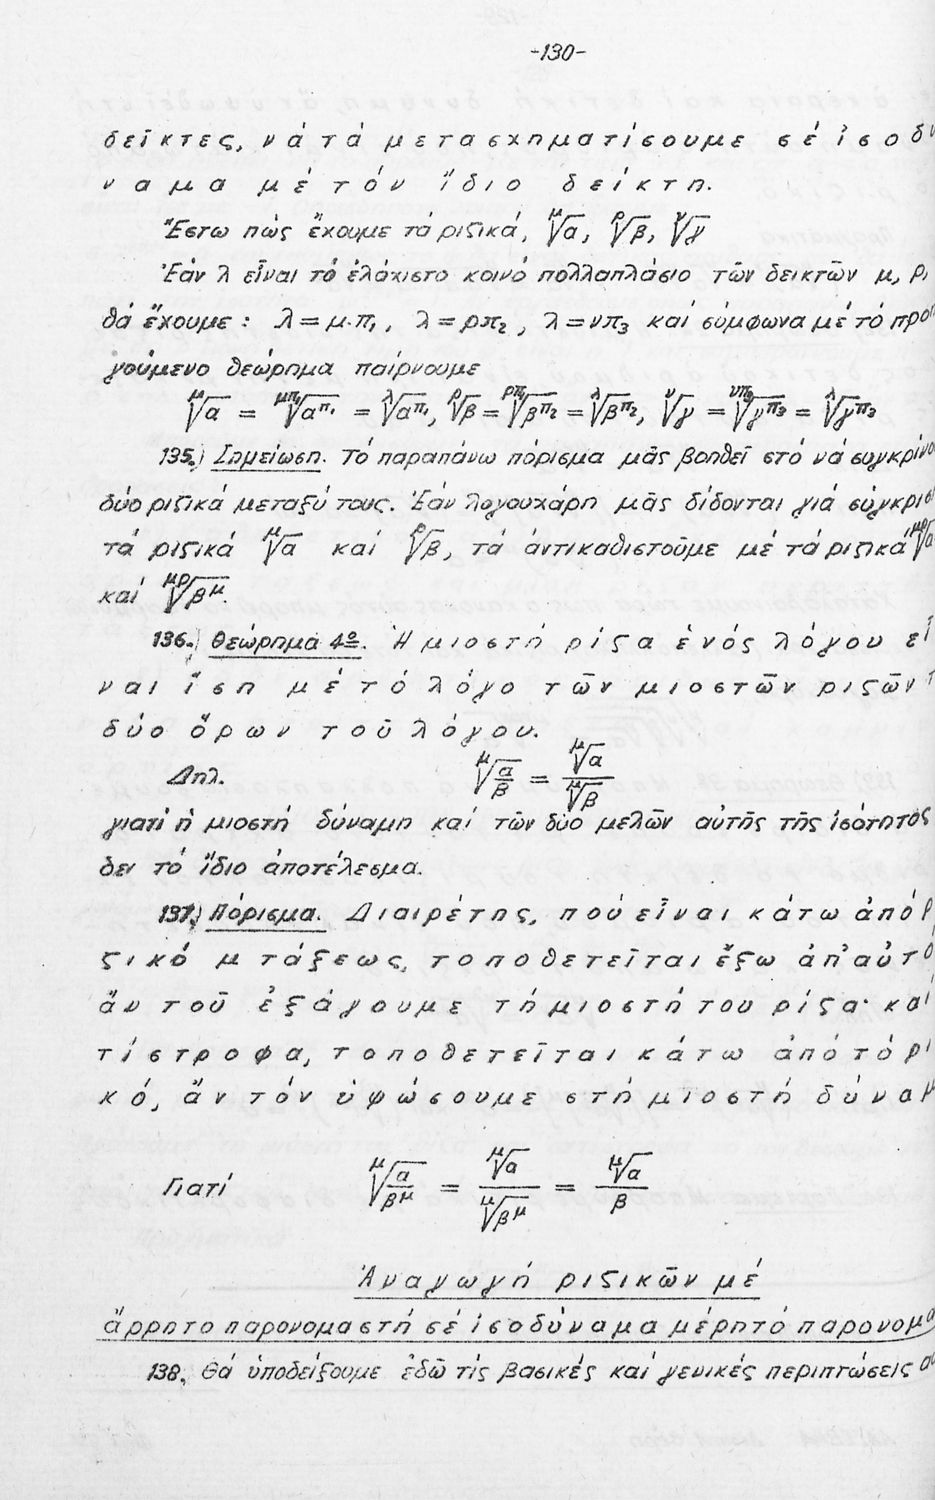 -130-
δεῖκτες, νά τά μετασχηματίσουμε σέ ἰσοδυ
ναμα μέ τόν ἴδιο δείκτη.
Ἔστω πώς ἔχουμε τά ριζικά, μ√α, ρ√β, ν√γ
Ἐάν λ εἶναι τό ἐλάχιστο κοινό πολλαπλάσιο τῶν δεικτῶν μ, ρ,
θά ἔχουμε : λ = μ·π₁, λ = ρπ₂, λ = νπ₃ καί σύμφωνα μέ τό προη
γούμενο θεώρημα παίρνουμε
μ√α = μπ₁√απ₁ = λ√απ₁, ρ√β = ρπ₂√βπ₂ = λ√βπ₂, ν√γ = νπ₃√γπ₃ = λ√γπ₃
135.) Σημείωση. Τό παραπάνω πόρισμα μᾶς βοηθεῖ στό νά συγκρίνου
δύο ριζικά μεταξύ τους. Ἐάν λογουχάρη μᾶς δίδονται γιά σύγκρισ
τά ριζικά μ√α καί ρ√β, τά ἀντικαθιστοῦμε μέ τά ριζικά μρ√α
καί μρ√βμ.
136.) Θεώρημα 4º. Ἡ μιοστή ρίζα ἑνός λόγου εἶ
ναι ἴση μέ τό λόγο τῶν μιοστῶν ριζῶν τ
δύο ὅρων τοῦ λόγου.
Δηλ. μ√α/β = μ√α / μ√β
γιατί ἡ μιοστή δύναμη καί τῶν δύο μελῶν αὐτῆς τῆς ἰσότητος
δει τό ἴδιο ἀποτέλεσμα.
137.) Πόρισμα. Διαιρέτης, πού εἶναι κάτω ἀπό ρ
ζικό μ τάξεως, τοποθετεῖται ἔξω ἀπ' αὐτό,
ἄν τοῦ ἐξάγουμε τή μιοστή του ρίζα· καί
τίστροφα, τοποθετεῖται κάτω ἀπό τό ρι
κό, ἄν τόν ὑψώσουμε στή μιοστή δύναμ
Γιατί μ√α/βμ = μ√α / μ√βμ = μ√α / β
Ἀναγωγή ριζικῶν μέ
ἄρρητο παρονομαστή σέ ἰσοδύναμα μέ ρητό παρονομα
138. Θά ὑποδείξουμε ἐδῶ τίς βασικές καί γενικές περιπτώσεις α